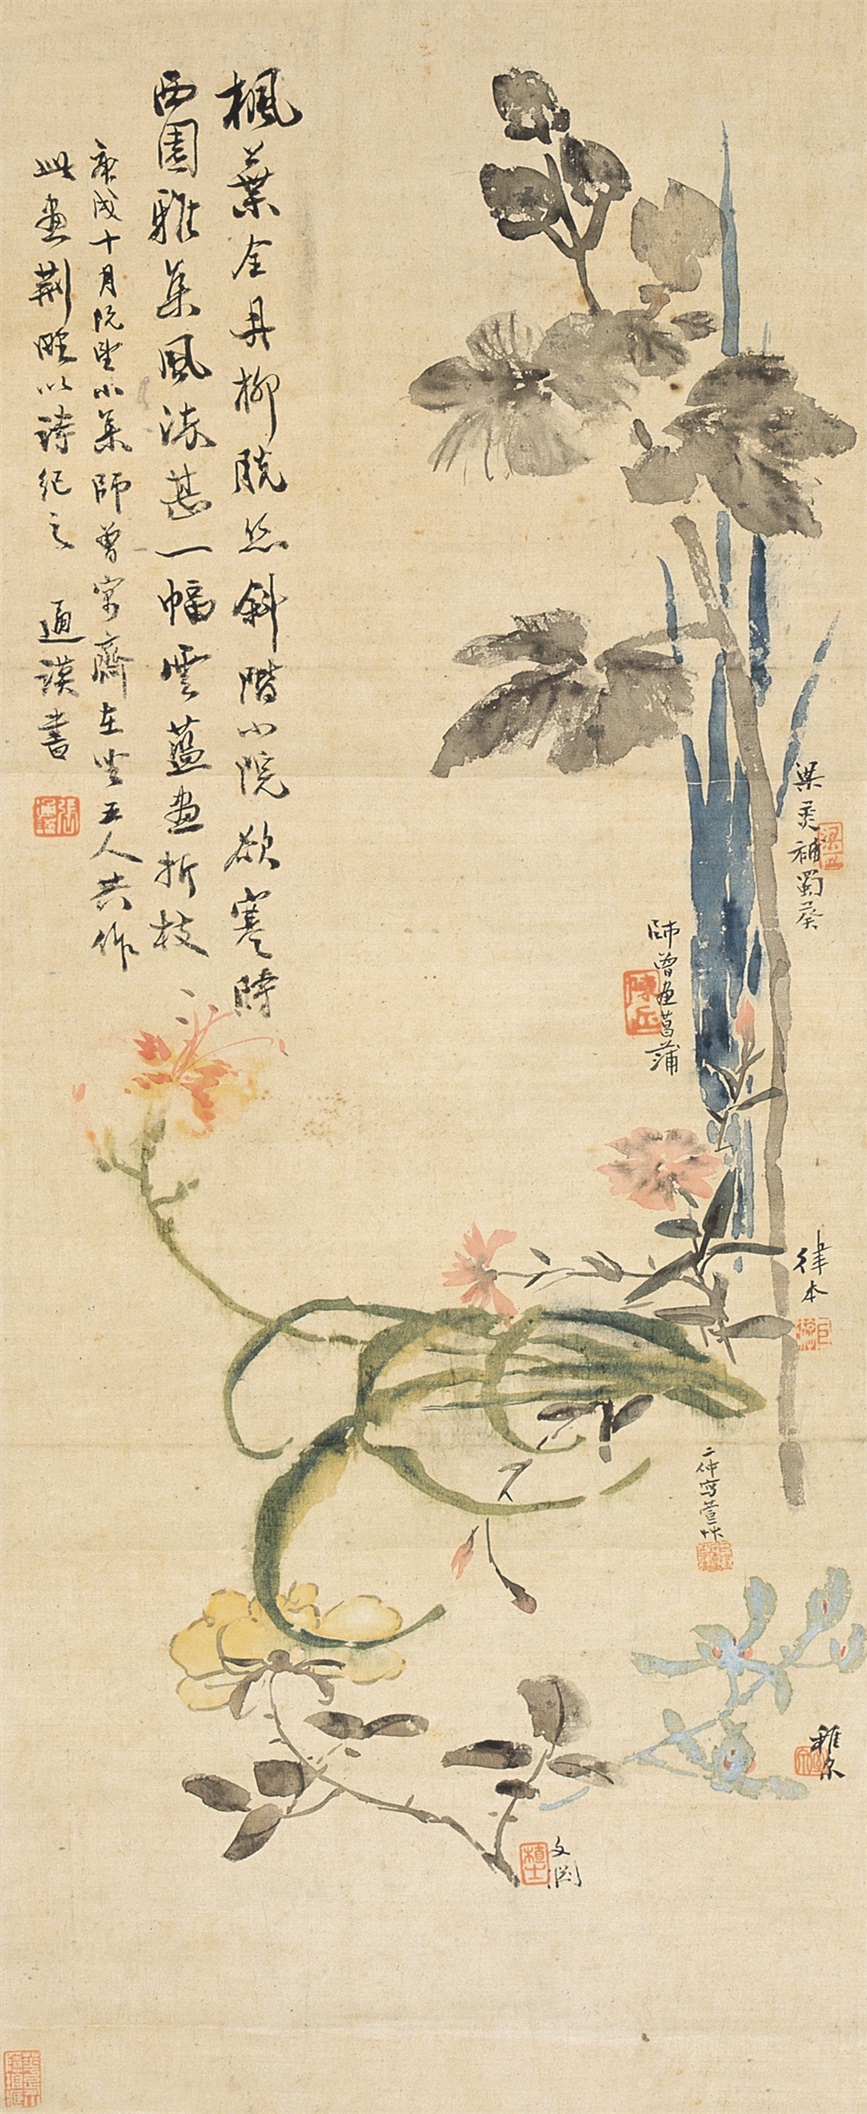 楓葉全丹柳脫絲斜階小院欲寒時
西園雅集風流甚一幅雲藍畫折枝
庚戌十月阮生小集師曾寓齋在坐五人共作
此畫荊 以詩紀之 通謨書
梁 補蜀葵
師曾畫菖蒲
律本
二仲寫萱艸
稚
文淵